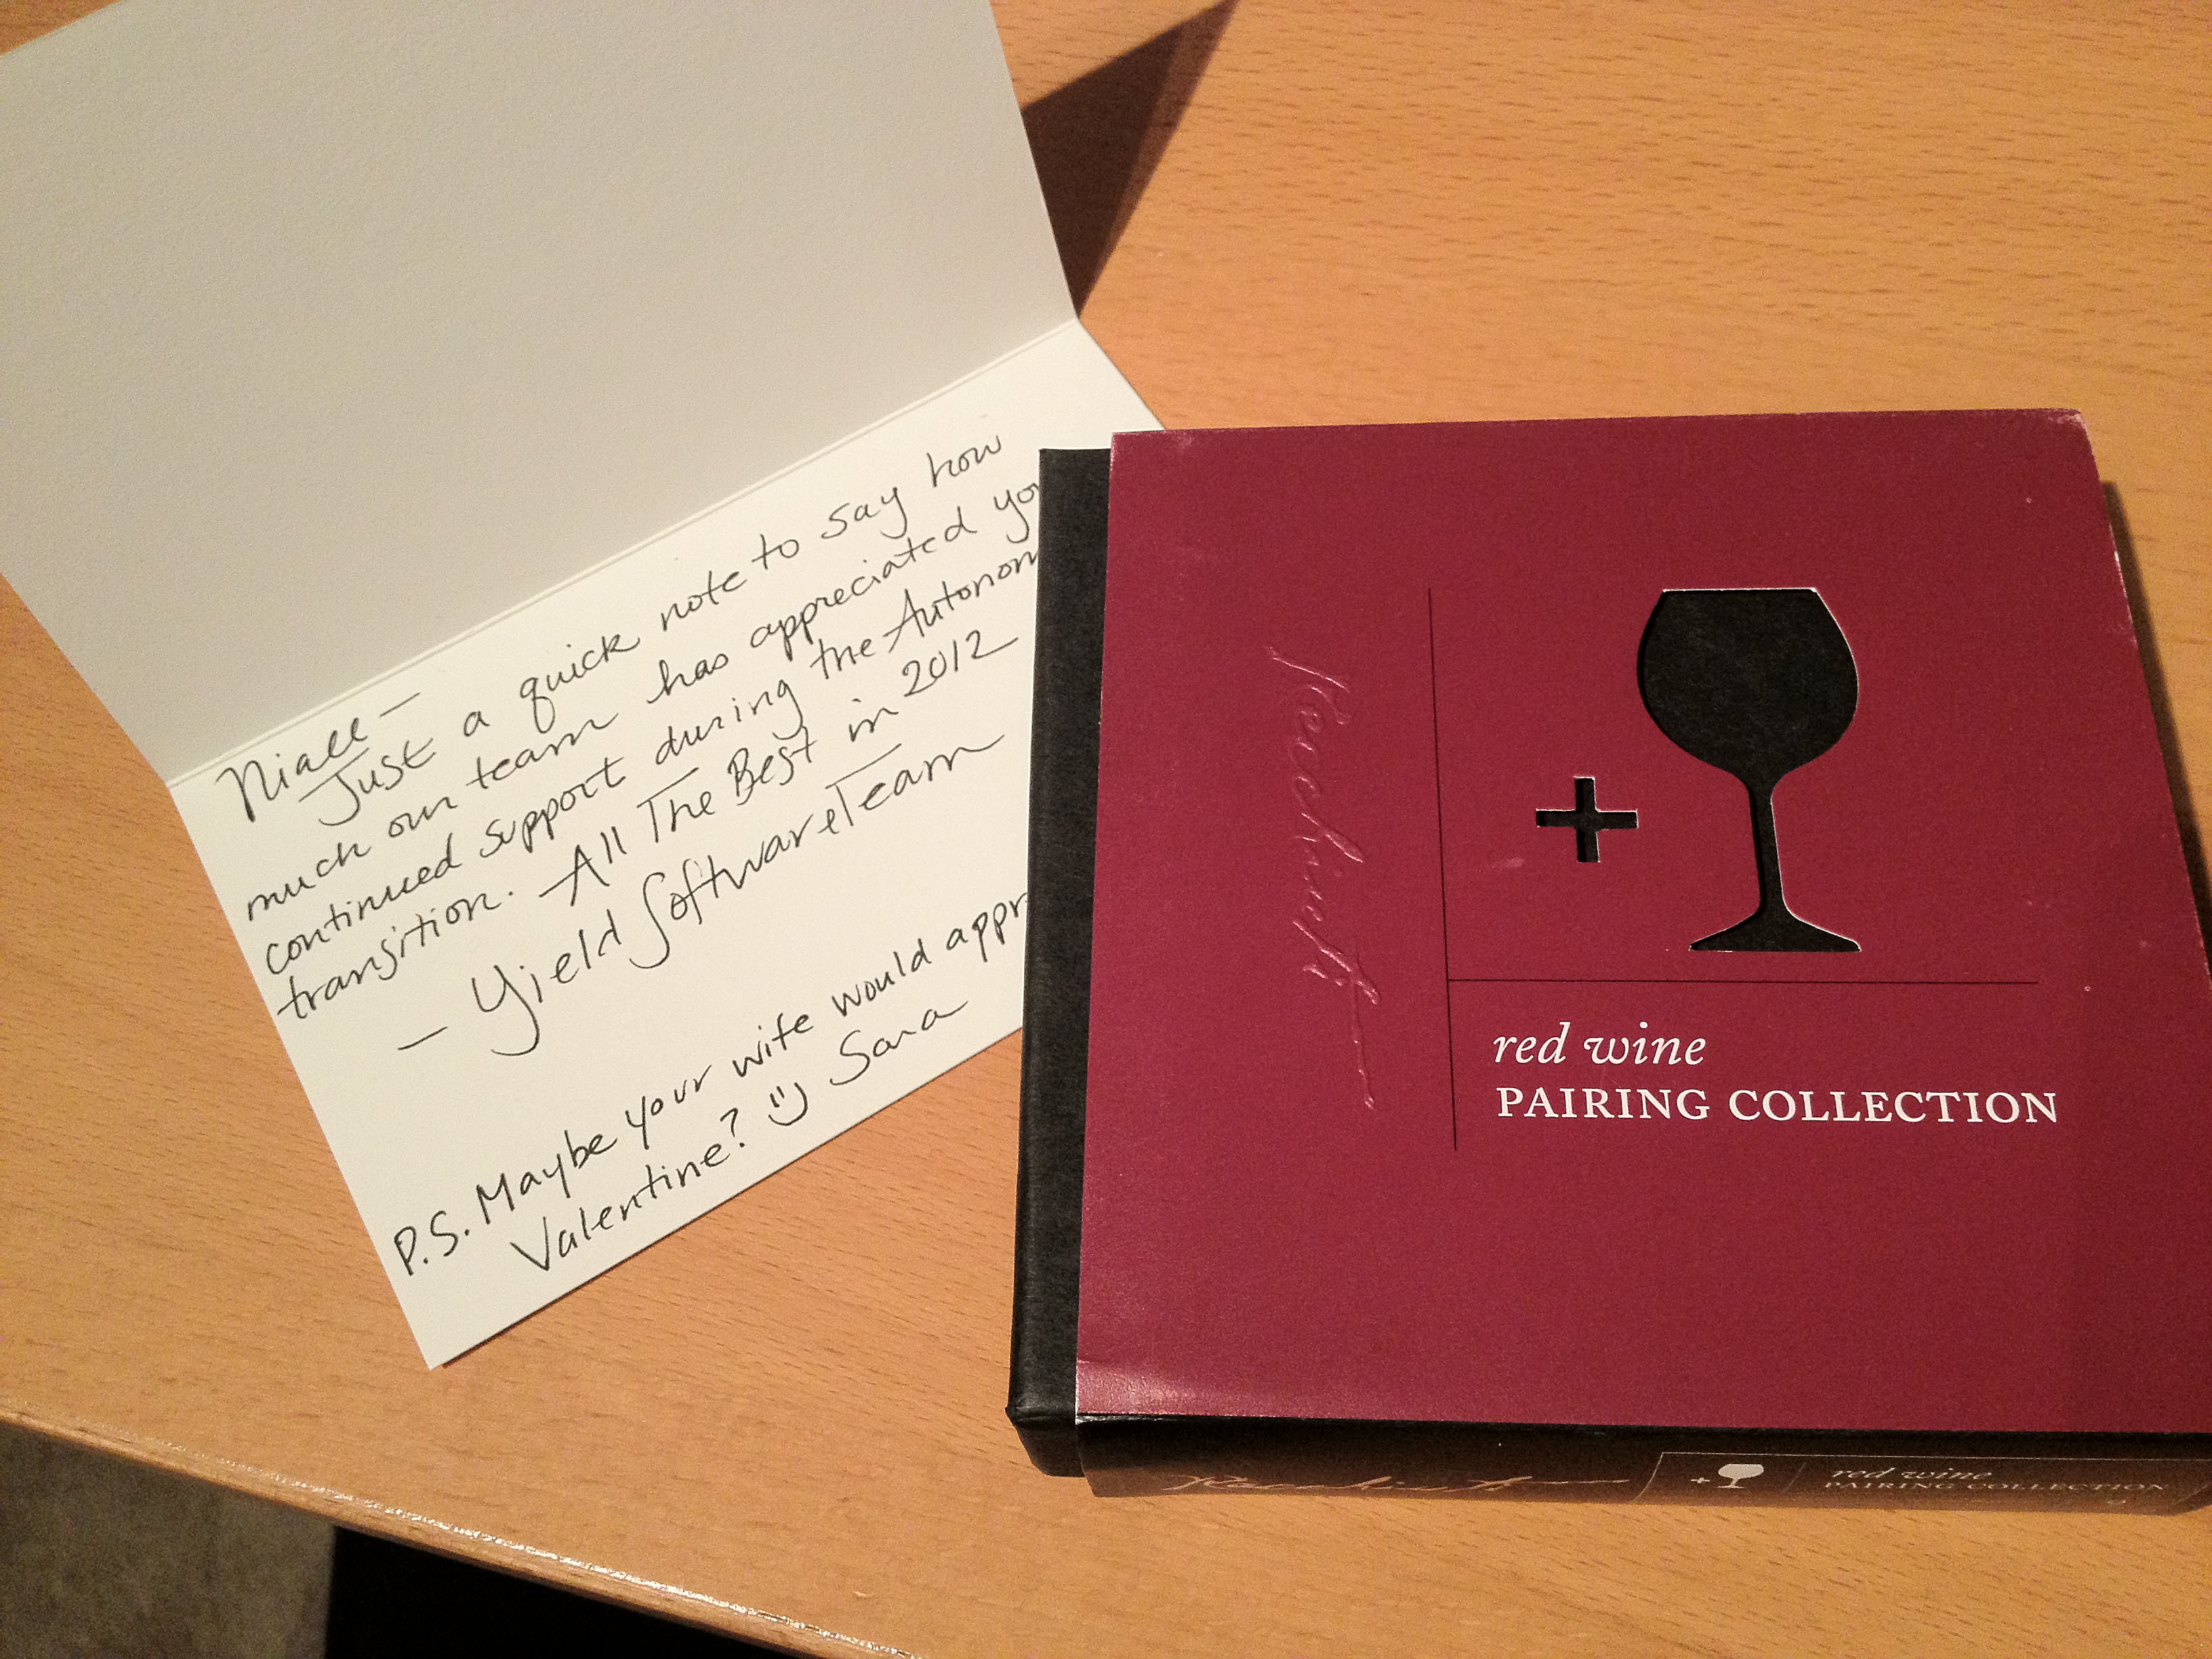 Niall —
Just a quick note to say how
much our team has appreciated you
continued support during the Autonom
transition. All The Best in 2012
— Yield Software Team
P.S. Maybe your wife would appr
Valentine? :) Sara
Recchiuti
+
red wine
PAIRING COLLECTION
Recchiuti
+
red wine
PAIRING COLLECTION